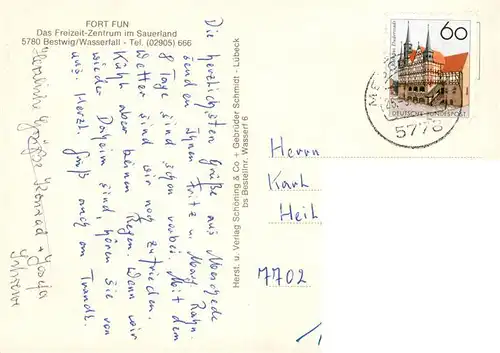 FORT FUN
Das Freizeit-Zentrum im Sauerland
5780 Bestwig/Wasserfall - Tel. (02905) 666
Die herzlichsten Grüße aus Meschede
senden Ihnen Fritz u. Marg. Rahn.
8 Tage sind schon vorbei. Mit dem
Wetter sind wir noch zufrieden.
Kühl aber keinen Regen. Wenn wir
wieder Daheim sind, hören Sie von
uns. Herzl. Gruß auch an
Herzliche Grüße Konrad + Josefa
Herst. u. Verlag Schöning & Co + Gebrüder Schmidt - Lübeck
bs Bestellnr. Wasserf 6
60
DEUTSCHE BUNDESPOST
5778
Herrn
Karl
Heih
7702